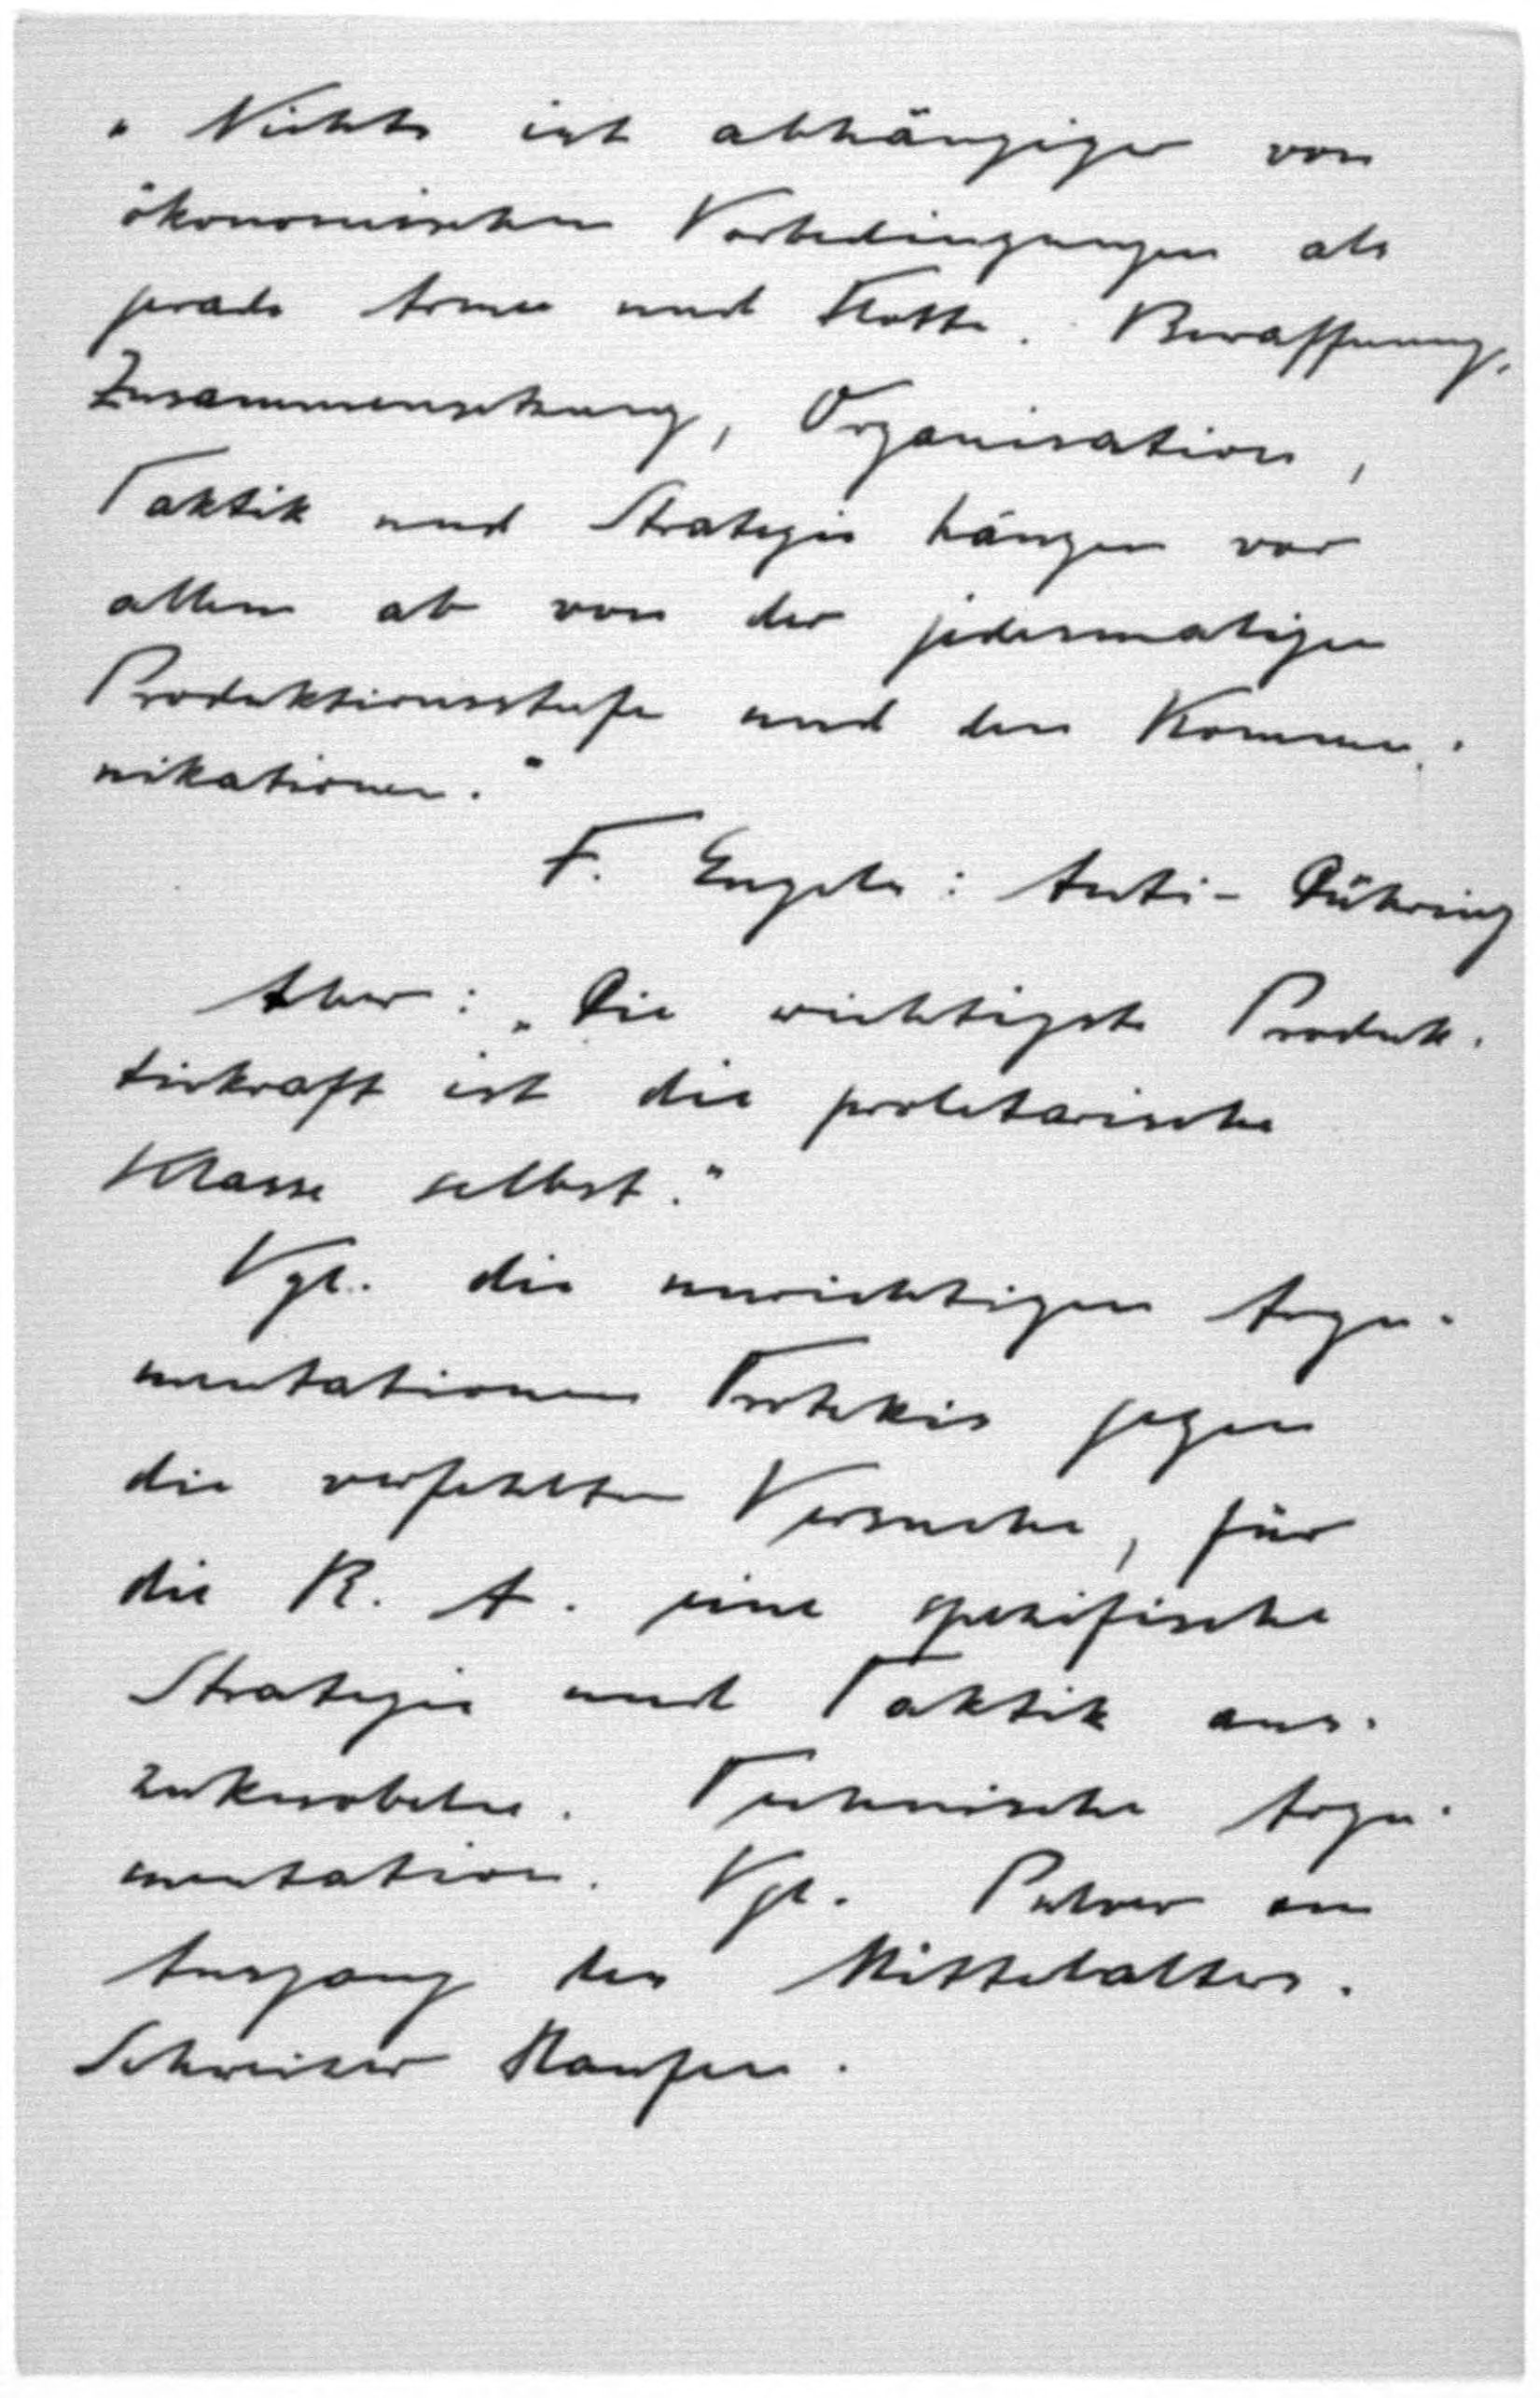 „Nichts ist abhängiger von
ökonomischen Vorbedingungen als
grade Armee und Flotte. Bewaffnung,
Zusammensetzung, Organisation,
Taktik und Strategie hängen vor
allem ab von der jedesmaligen
Produktionsstufe und den Kommu-
nikationen."
F. Engels: Anti-Dühring
Aber: „Die wichtigste Produk-
tivkraft ist die proletarische
Klasse selbst."
Vgl. die unrichtigen Argu-
mentationen Trotzkis gegen
die verfehlten Versuche, für
die R. A. eine spezifische
Strategie und Taktik aus-
zuknobeln. Technische Argu-
mentation. Vgl. Pulver am
Ausgang des Mittelalters.
Schweizer Haufen.